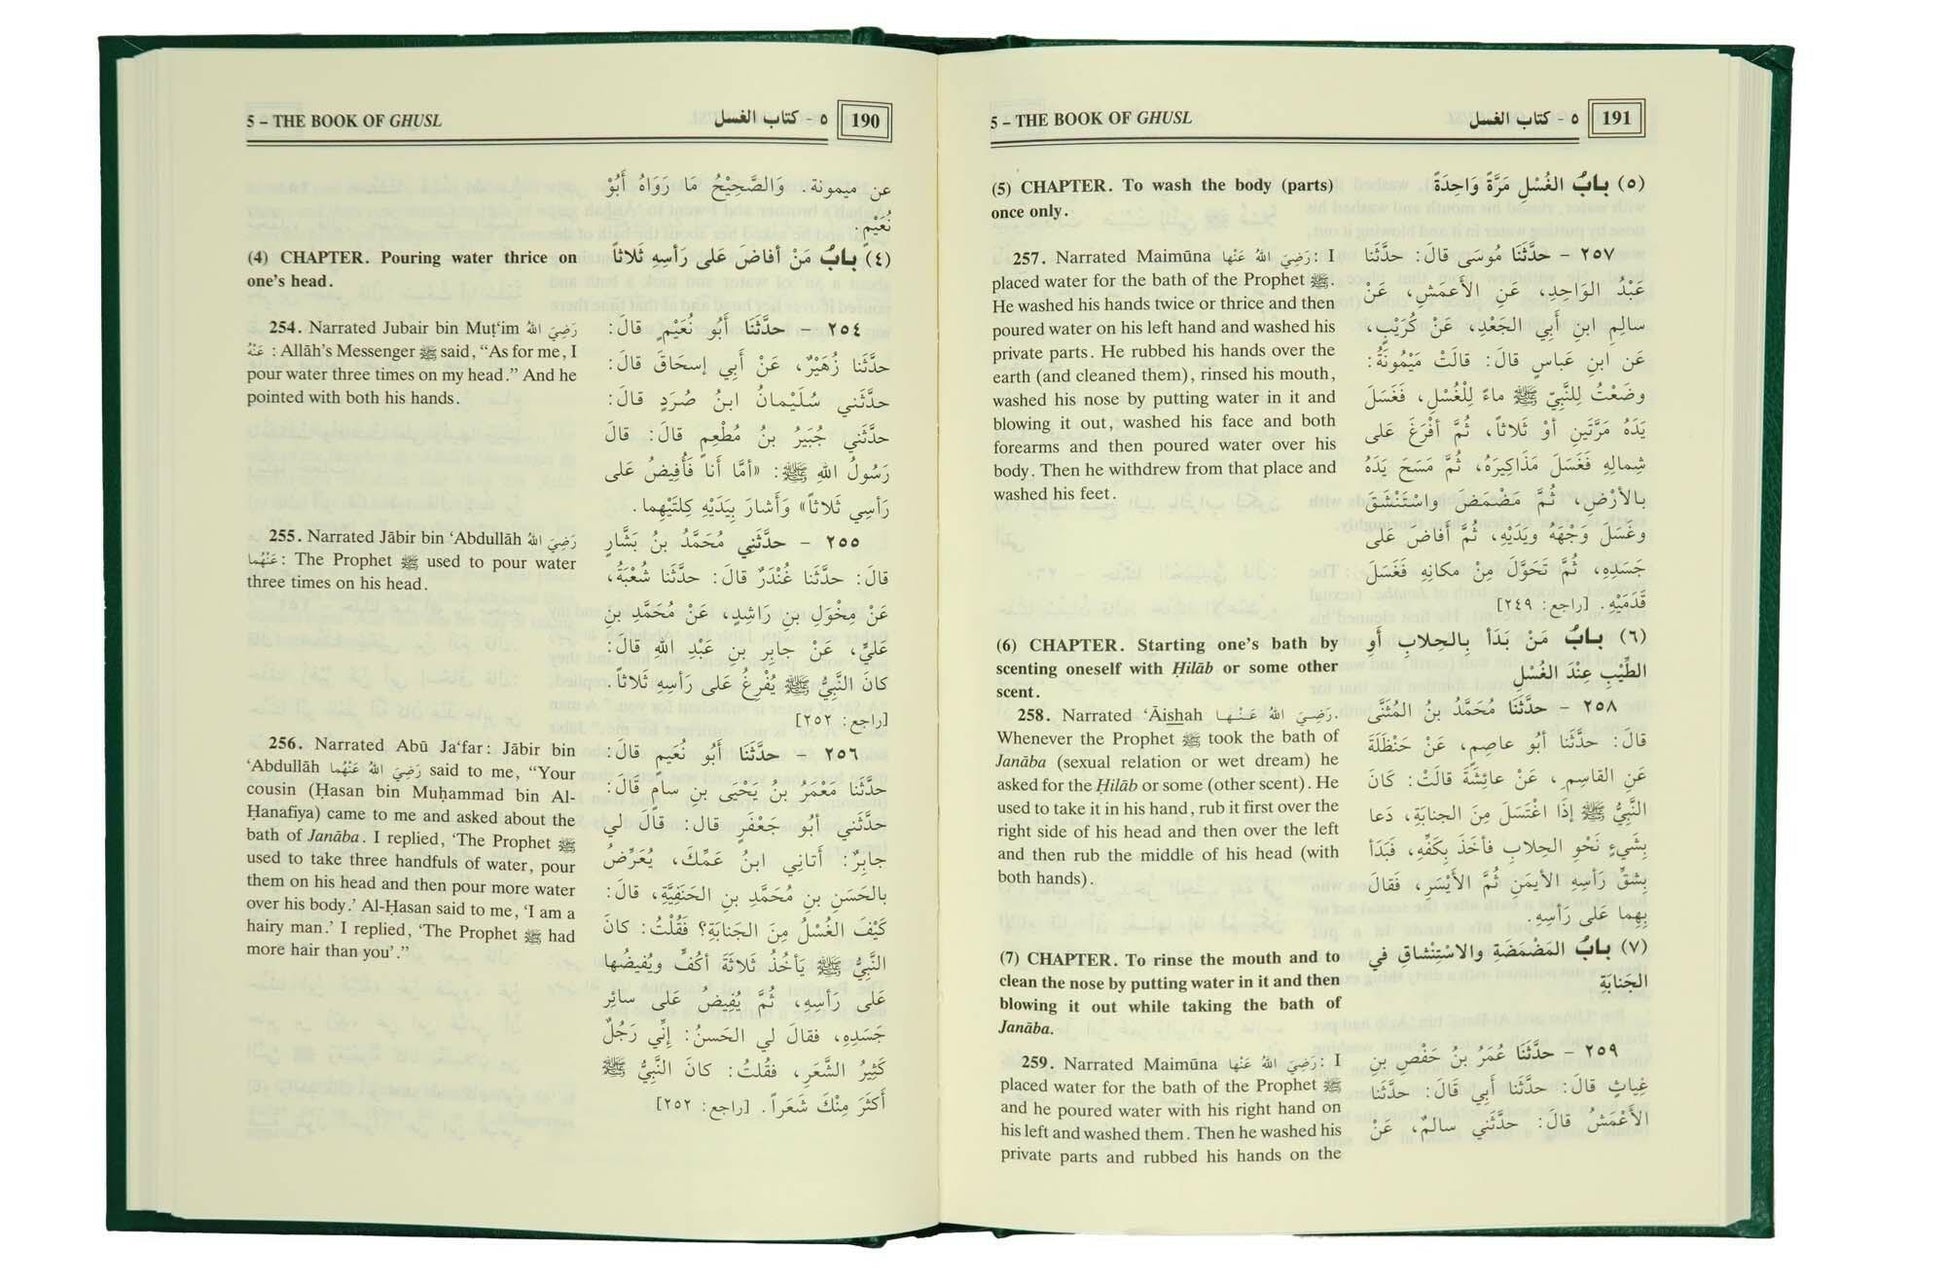 5 – THE BOOK OF GHUSL
٥ - كتاب الغسل
190
(4) CHAPTER. Pouring water thrice on
one's head.
254. Narrated Jubair bin Muṭ‘im رَضِيَ اللهُ
عَنْهُ : Allāh's Messenger ﷺ said, “As for me, I
pour water three times on my head.” And he
pointed with both his hands.
255. Narrated Jābir bin ‘Abdullāh رَضِيَ اللهُ
عَنْهُما: The Prophet ﷺ used to pour water
three times on his head.
256. Narrated Abū Ja‘far: Jābir bin
‘Abdullāh رَضِيَ اللهُ عَنْهُما said to me, “Your
cousin (Ḥasan bin Muḥammad bin Al-
Ḥanafiya) came to me and asked about the
bath of Janāba. I replied, ‘The Prophet ﷺ
used to take three handfuls of water, pour
them on his head and then pour more water
over his body.’ Al-Ḥasan said to me, ‘I am a
hairy man.’ I replied, ‘The Prophet ﷺ had
more hair than you’.”
عن ميمونة. وَالصَّحِيْحُ مَا رَوَاهُ أَبُوْ
نُعَيْمٍ.
(٤) بابُ مَنْ أفاضَ عَلى رَأسِهِ ثَلاثاً
٢٥٤ - حدَّثَنَا أَبُو نُعَيْمٍ قالَ:
حدَّثَنا زُهَيْرٌ، عَنْ أَبي إسحَاقَ قالَ:
حدَّثَني سُلَيْمانُ ابنُ صُرَدٍ قالَ:
حدَّثَني جُبَيرُ بنُ مُطْعِمٍ قالَ: قالَ
رَسُولُ اللهِ ﷺ: «أمَّا أنا فَأُفِيضُ عَلى
رَأسِي ثَلاثاً» وَأَشارَ بِيَدَيْهِ كِلتَيْهِما.
٢٥٥ - حدَّثَني مُحَمَّدُ بنُ بَشَّارٍ
قالَ: حدَّثَنا غُنْدَرٌ قالَ: حدَّثَنا شُعْبَةُ،
عَنْ مِخْوَلِ بنِ رَاشِدٍ، عَنْ مُحَمَّدِ بنِ
عَليٍّ، عَنْ جابِرِ بنِ عَبْدِ اللهِ قالَ:
كانَ النَّبِيُّ ﷺ يُفْرِغُ عَلى رَأسِهِ ثَلاثاً.
[راجع: ٢٥٢]
٢٥٦ - حدَّثَنَا أَبُو نُعَيمٍ قالَ:
حدَّثَنا مَعْمَرُ بنُ يَحْيَى بنِ سامٍ قَالَ:
حدَّثَني أبُو جَعْفَرٍ قال: قالَ لي
جابِرٌ: أَتاني ابنُ عَمِّكَ، يُعَرِّضُ
بالحَسَنِ بنِ مُحَمَّدِ بنِ الحَنَفِيَّةِ، قالَ:
كَيْفَ الغُسْلُ مِنَ الجَنابَةِ؟ فَقُلْتُ: كانَ
النَّبِيُّ ﷺ يَأخُذُ ثَلاثَةَ أكُفٍّ ويُفيضُها
عَلى رَأسِهِ، ثُمَّ يُفِيضُ عَلى سائِرِ
جَسَدِهِ، فقالَ لي الحَسنُ: إنِّي رَجُلٌ
كَثِيرُ الشَّعَرِ، فقُلتُ: كانَ النَّبِيُّ ﷺ
أَكثَرَ مِنْكَ شَعَراً. [راجع: ٢٥٢]
5 – THE BOOK OF GHUSL
٥ - كتاب الغسل
191
(5) CHAPTER. To wash the body (parts)
once only.
257. Narrated Maimūna رَضِيَ اللهُ عَنْها: I
placed water for the bath of the Prophet ﷺ.
He washed his hands twice or thrice and then
poured water on his left hand and washed his
private parts. He rubbed his hands over the
earth (and cleaned them), rinsed his mouth,
washed his nose by putting water in it and
blowing it out, washed his face and both
forearms and then poured water over his
body. Then he withdrew from that place and
washed his feet.
(6) CHAPTER. Starting one's bath by
scenting oneself with Ḥilāb or some other
scent.
258. Narrated ‘Āishah رَضِيَ اللهُ عَنْها.
Whenever the Prophet ﷺ took the bath of
Janāba (sexual relation or wet dream) he
asked for the Ḥilāb or some (other scent). He
used to take it in his hand, rub it first over the
right side of his head and then over the left
and then rub the middle of his head (with
both hands).
(7) CHAPTER. To rinse the mouth and to
clean the nose by putting water in it and then
blowing it out while taking the bath of
Janāba.
259. Narrated Maimūna رَضِيَ اللهُ عَنْها: I
placed water for the bath of the Prophet ﷺ
and he poured water with his right hand on
his left and washed them. Then he washed his
private parts and rubbed his hands on the
(٥) بابُ الغُسْلِ مَرَّةً وَاحِدَةً
٢٥٧ - حدَّثَنَا مُوسَى قالَ: حدَّثَنَا
عَبْدُ الوَاحِدِ، عَنِ الأَعمَشِ، عَنْ
سالِمِ ابنِ أَبي الجَعْدِ، عَنْ كُرَيْبٍ،
عَن ابنِ عَباسٍ قالَ: قالَتْ مَيْمُونَةُ:
وضَعْتُ لِلنَّبِيِّ ﷺ ماءً لِلْغُسْلِ، فَغَسَلَ
يَدَهُ مَرَّتَينِ أوْ ثلاثاً، ثُمَّ أفْرَغَ عَلى
شِمالِهِ فَغَسَلَ مَذَاكِيرَهُ، ثُمَّ مَسَحَ يَدَهُ
بالأَرْضِ، ثُمَّ مَضْمَضَ واسْتَنْشَقَ
وغَسَلَ وَجْهَهُ ويَدَيْهِ، ثُمَّ أَفاضَ عَلى
جَسَدِهِ، ثُمَّ تَحَوَّلَ مِنْ مكانِهِ فَغَسَلَ
قَدَمَيْهِ. [راجع: ٢٤٩]
(٦) بابُ مَنْ بَدَأ بِالحِلابِ أو
الطِّيْبِ عِنْدَ الغُسْلِ
٢٥٨ - حدَّثَنَا مُحَمَّدُ بنُ المُثَنَّى
قالَ: حدَّثَنا أبُو عاصِمٍ، عَنْ حَنْظَلَةَ
عَنِ القاسِمِ، عَنْ عائِشَةَ قالَتْ: كَانَ
النَّبِيُّ ﷺ إِذَا اغْتَسَلَ مِنَ الجنابَةِ، دَعا
بِشَيءٍ نَحْوِ الحِلابِ فأخَذَ بِكَفِّهِ، فَبَدَأَ
بِشِقِّ رَأسِهِ الأيمَنِ ثُمَّ الأيْسَرِ، فَقالَ
بِهِما عَلى رَأسِهِ.
(٧) بابُ المَضْمَضَةِ والاسْتِنْشاقِ في
الجَنابَةِ
٢٥٩ - حدَّثَنَا عُمَرُ بنُ حَفْصِ بنِ
غِياثٍ قالَ: حدَّثَنا أَبي قَالَ: حدَّثَنا
الأَعْمَشُ قالَ: حدَّثَني سالمٌ، عَنْ